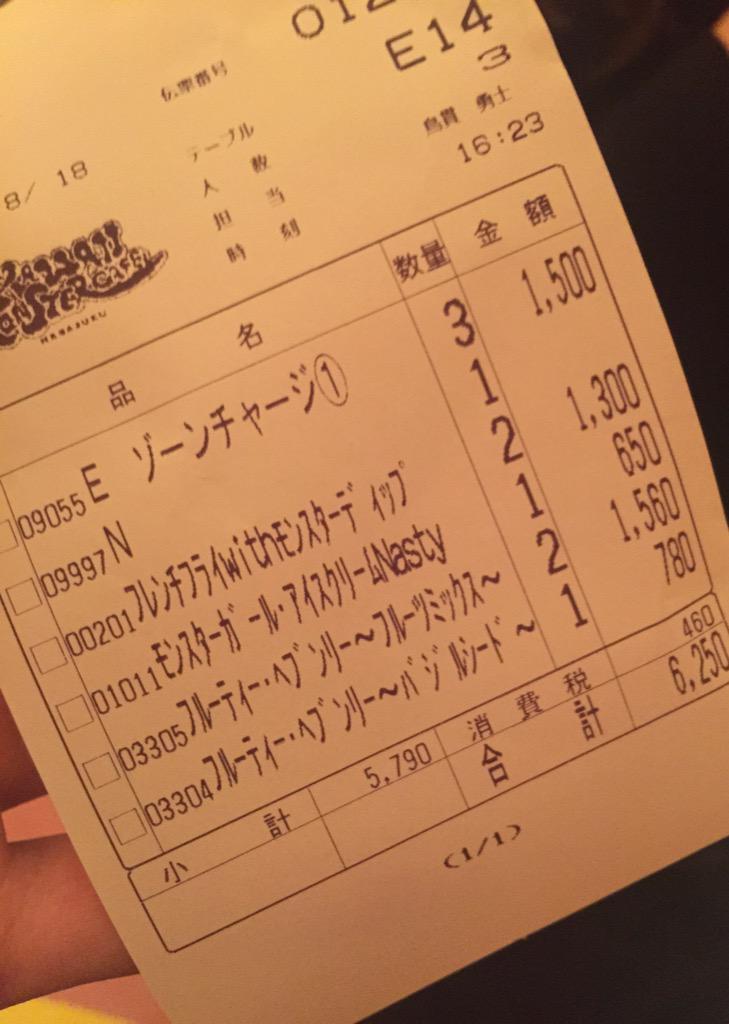 伝票番号 012
テーブル E14
人数 3
担当 鳥貫 勇士
時刻 16:23
8/ 18
KAWAII
MONSTER CAFE
HARAJUKU
品名 数量 金額
09055 E ゾーンチャージ① 3 1,500
09997 N 1
00201 フレンチフライwithモンスターディップ 2 1,300
01011 モンスターガール・アイスクリームNasty 1 650
03305 フルーティー・ヘブンリー～フルーツミックス～ 2 1,560
03304 フルーティー・ヘブンリー～バジルシード～ 1 780
小計 5,790 消費税 460
合計 6,250
(1/1)